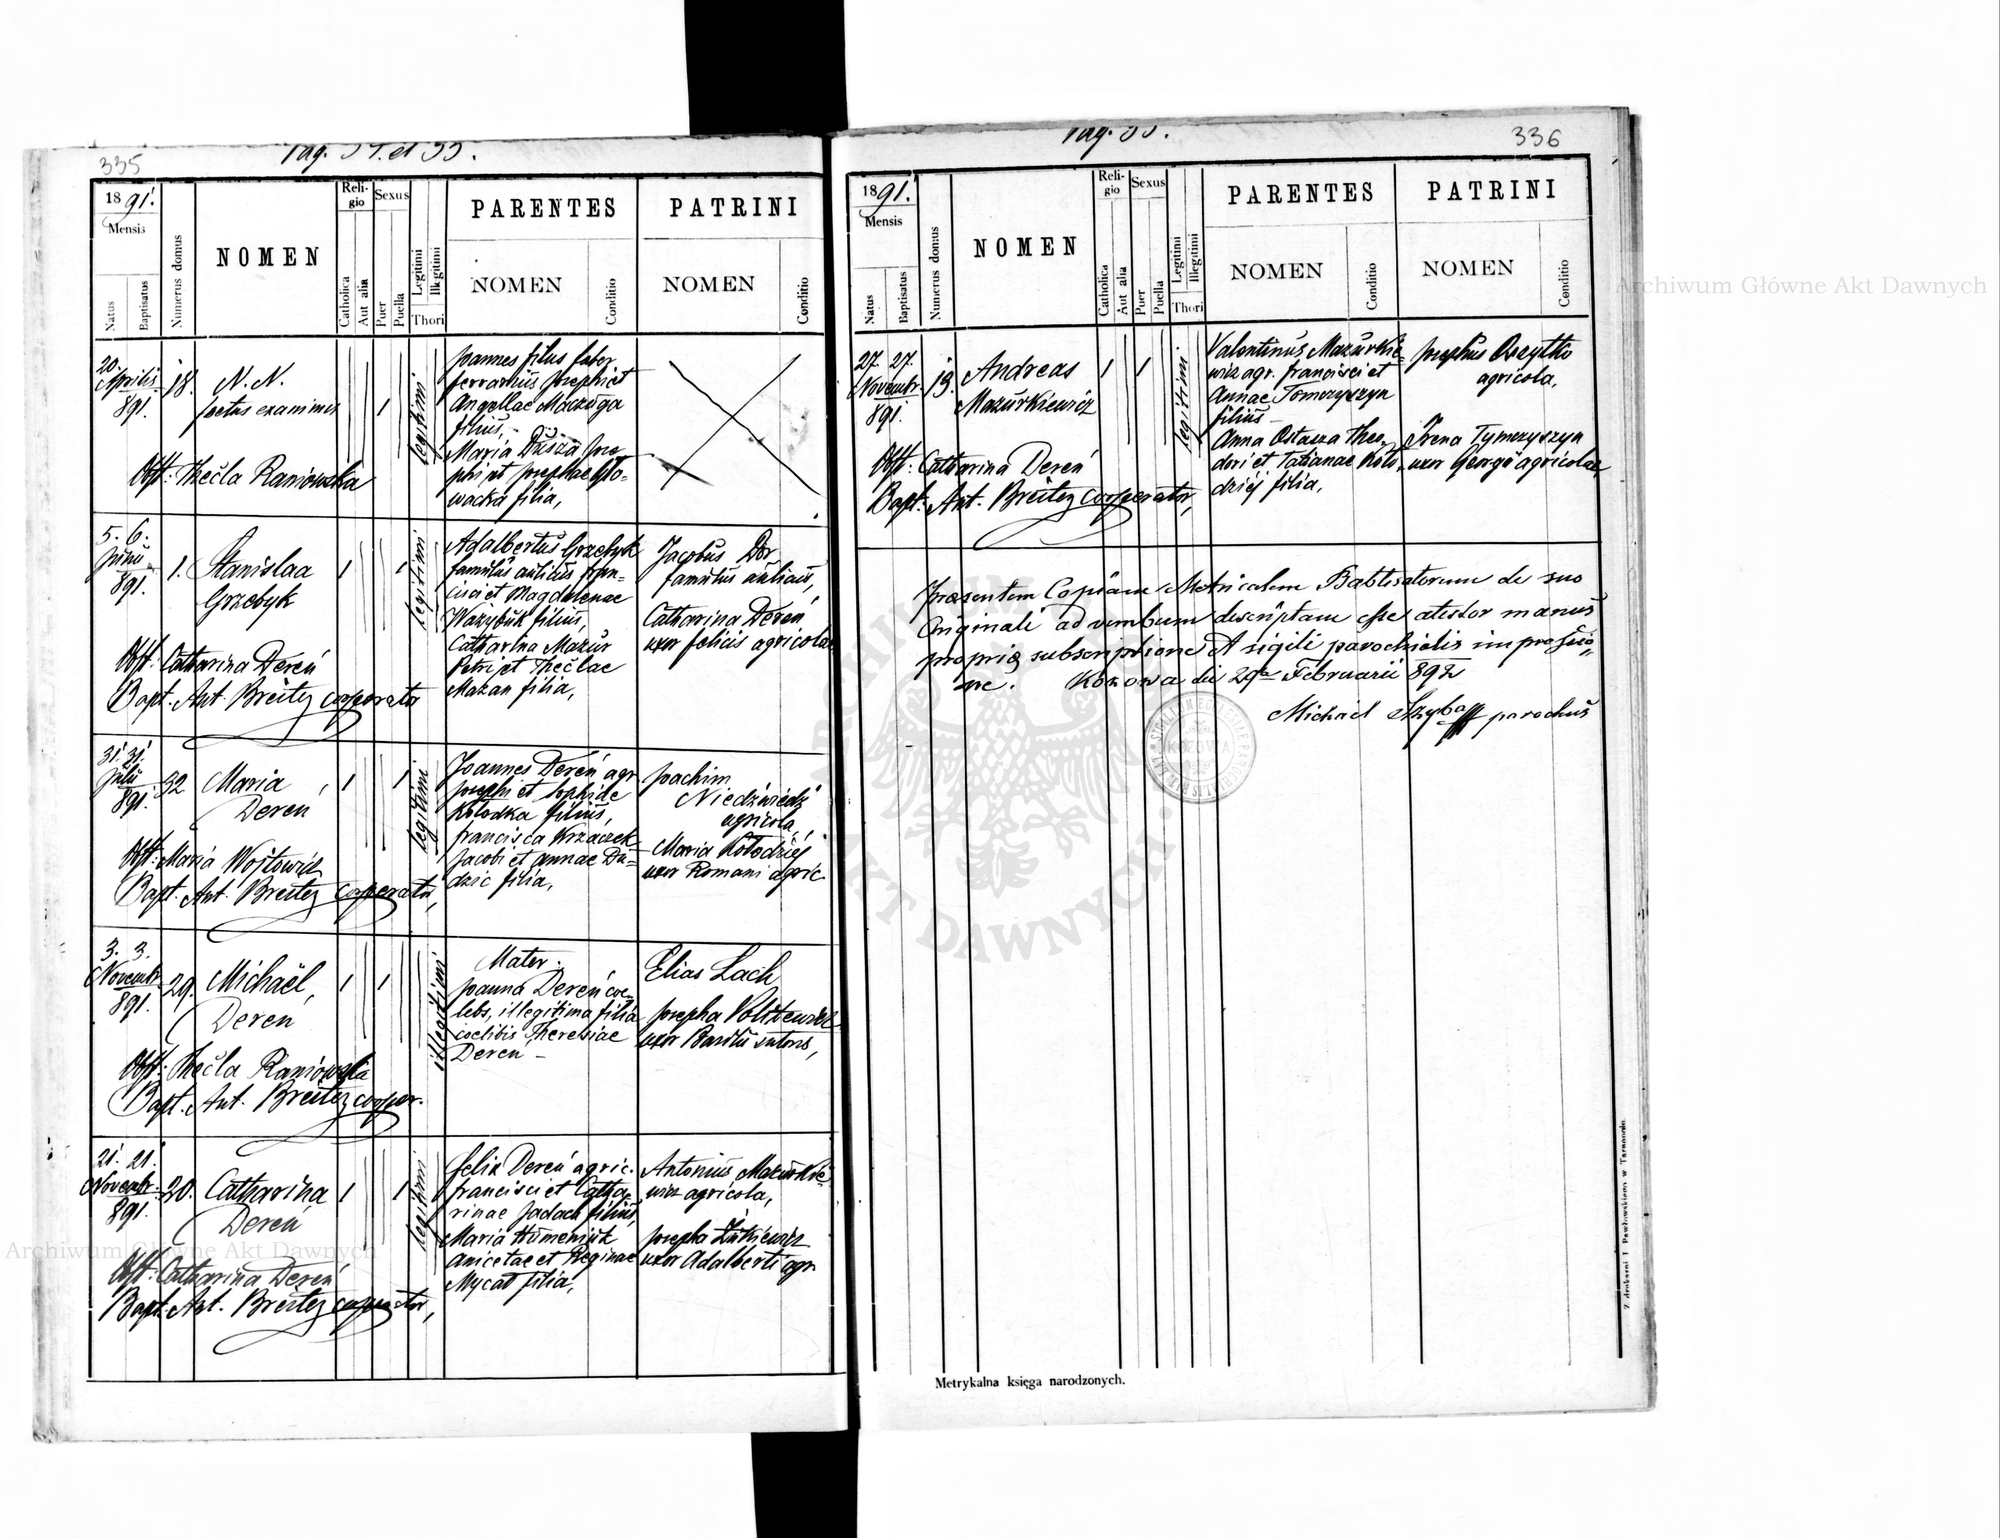 335
Pag. 34. et 35.
1891.
Mensis
Natus
Baptisatus
Numerus domus
NOMEN
Religio
Catholica
Aut alia
Sexus
Puer
Puella
Legitimi
Illegitimi
Thori
PARENTES
NOMEN
Conditio
PATRINI
NOMEN
Conditio
20.
Aprilis
891.
18.
N. N.
foetus exanimis
1
legitimi
Joannes filius faber
ferrarius Josephi et
Angellae Maczuga
filius,
Maria Dusza Jose-
phi et Josephae Gło-
wacka filia,
Obst: Thecla Raniowska
5. 6.
Junii
891.
1.
Stanislaa
Grzebyk
1
1
legitimi
Adalbertus Grzebyk
famulus aulicus fran-
cisci et Magdalenae
Ważybuk filius,
Catharina Mazur
Petri et Theclae
Mazan filia,
Jacobus Dor
famulus aulicus,
Catharina Dereń
uxor felicis agricolae
Obst: Catharina Dereń
Bapt. Ant. Breitez cooperator
31. 31.
Julii
891.
32
Maria
Dereń
1
1
legitimi
Joannes Dereń agr
Josephi et Sophiae
Kołodka filius,
francisca Krzaczek
Jacobi et Annae Du-
dzic filia,
Joachim
Niedźwiedź
agricola,
Maria Kołodziej
uxor Romani agric
Obst: Maria Wojtowicz
Bapt. Ant. Breitez cooperator,
3. 3.
Novembr
891.
29.
Michaël,
Dereń
1
1
illegitimi
Mater.
Joanna Dereń coe-
lebs, illegitima filia
coelibis Theresiae
Dereń –
Elias Lach
Josepha Politewicz
uxor Basilii sutoris,
Obst: Thecla Raniowska
Bapt. Ant. Breitez cooper.
21. 21.
Novembr.
891.
20.
Catharina
Dereń
1
1
legitimi
Felix Dereń agric.
francisci et Catha-
rinae Jadach filius,
Maria Humeniuk
Anicetae et Reginae
Mycao filia,
Antonius Mazurkie-
wicz agricola,
Josepha Żukiewicz
uxor Adalberti agr
Obst: Catharina Dereń
Bapt. Ant. Breitez cooperator,
336
Pag. 35.
1891.
Mensis
Natus
Baptisatus
Numerus domus
NOMEN
Religio
Catholica
Aut alia
Sexus
Puer
Puella
Legitimi
Illegitimi
Thori
PARENTES
NOMEN
Conditio
PATRINI
NOMEN
Conditio
27. 27.
Novembr
891.
13.
Andreas
Mazurkiewicz
1
1
legitimi
Valentinus Mazurkie-
wicz agr. francisci et
Annae Tomczyszyn
filius –
Anna Ostasza Theo-
dori et Tatianae Koło-
dziej filia,
Josephus Oszytko
agricola,
Irena Tymczyszyn
uxor Georgii agricolae
Obst: Catharina Dereń
Bapt. Ant. Breitez cooperator,
Praesentem Copiam Metricalem Babtisatorum de suo
Originali ad verbum descriptam esse atestor manus
propriae subscriptione & sigili parochialis impressio-
ne. Kozowa die 29a Februarii 892
Michael Szyba parochus
KOZOWA
Metrykalna księga narodzonych.
Z drukarni J. Pawłowskiego w Tarnopolu.
Archiwum Główne Akt Dawnych
Archiwum Główne Akt Dawnych
ARCHIWUM
AKT DAWNYCH